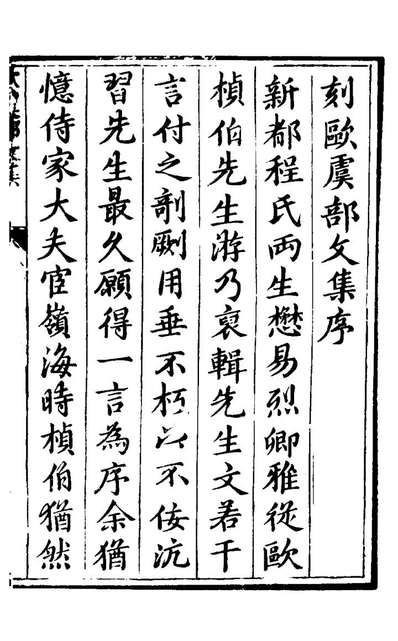 刻歐虞部文集序
新都程氏兩生懋易烈卿雅從歐
楨伯先生游乃裒輯先生文若干
言付之剞劂用垂不朽以不佞沆
習先生最久願得一言為序余猶
憶侍家大夫宦嶺海時楨伯猶然